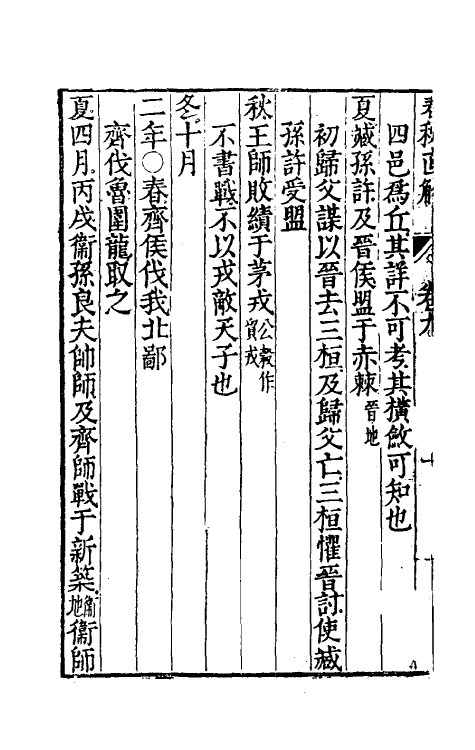 春秋直解 卷九
四邑爲丘其詳不可考其橫斂可知也
夏臧孫許及晉侯盟于赤棘晉地
初歸父謀以晉去三桓及歸父亡三桓懼晉討使臧
孫許受盟
秋王師敗績于茅戎公穀作貿戎
不書戰不以戎敵天子也
冬十月
二年○春齊侯伐我北鄙
齊伐魯圍龍取之
夏四月丙戌衞孫良夫帥師及齊師戰于新築衞地衞師